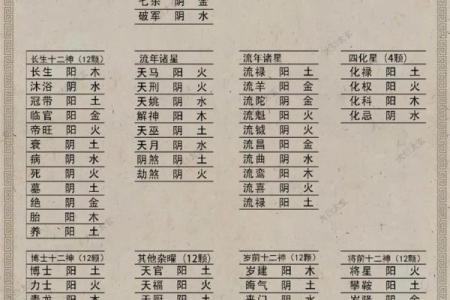 七杀 阴 金
破军 阴 水
长生十二神（12颗）
长生 阳 木
沐浴 阴 水
冠带 阳 土
临官 阳 金
帝旺 阳 火
衰 阴 土
病 阴 水
死 阴 火
墓 阴 土
绝 阴 金
胎 阳 木
养 阳 土
流年诸星
天马 阳 火
天刑 阴 火
天姚 阴 水
解神 阳 木
天巫 阴 土
天月 阴 水
阴煞 阴 土
劫煞 阴 火
流年诸星
流禄 阳 土
流羊 阳 金
流陀 阴 金
流魁 阳 火
流钺 阴 火
流昌 阳 金
流曲 阴 水
流鸾 阳 木
流喜 阴 火
流禄 阳 土
四化星（4颗）
化禄 阳 土
化权 阳 火
化科 阳 木
化忌 阴 水
博士十二神（12颗）
博士 阳 土
力士 阳 火
青龙 阳
其他杂曜（12颗）
天官 阳 土
天福 阳 土
岁前十二神（12颗）
岁建 阳 火
晦气 阴 水
将前十二神（12颗）
将星 阳 火
攀鞍 阳 土
岁驿 阳